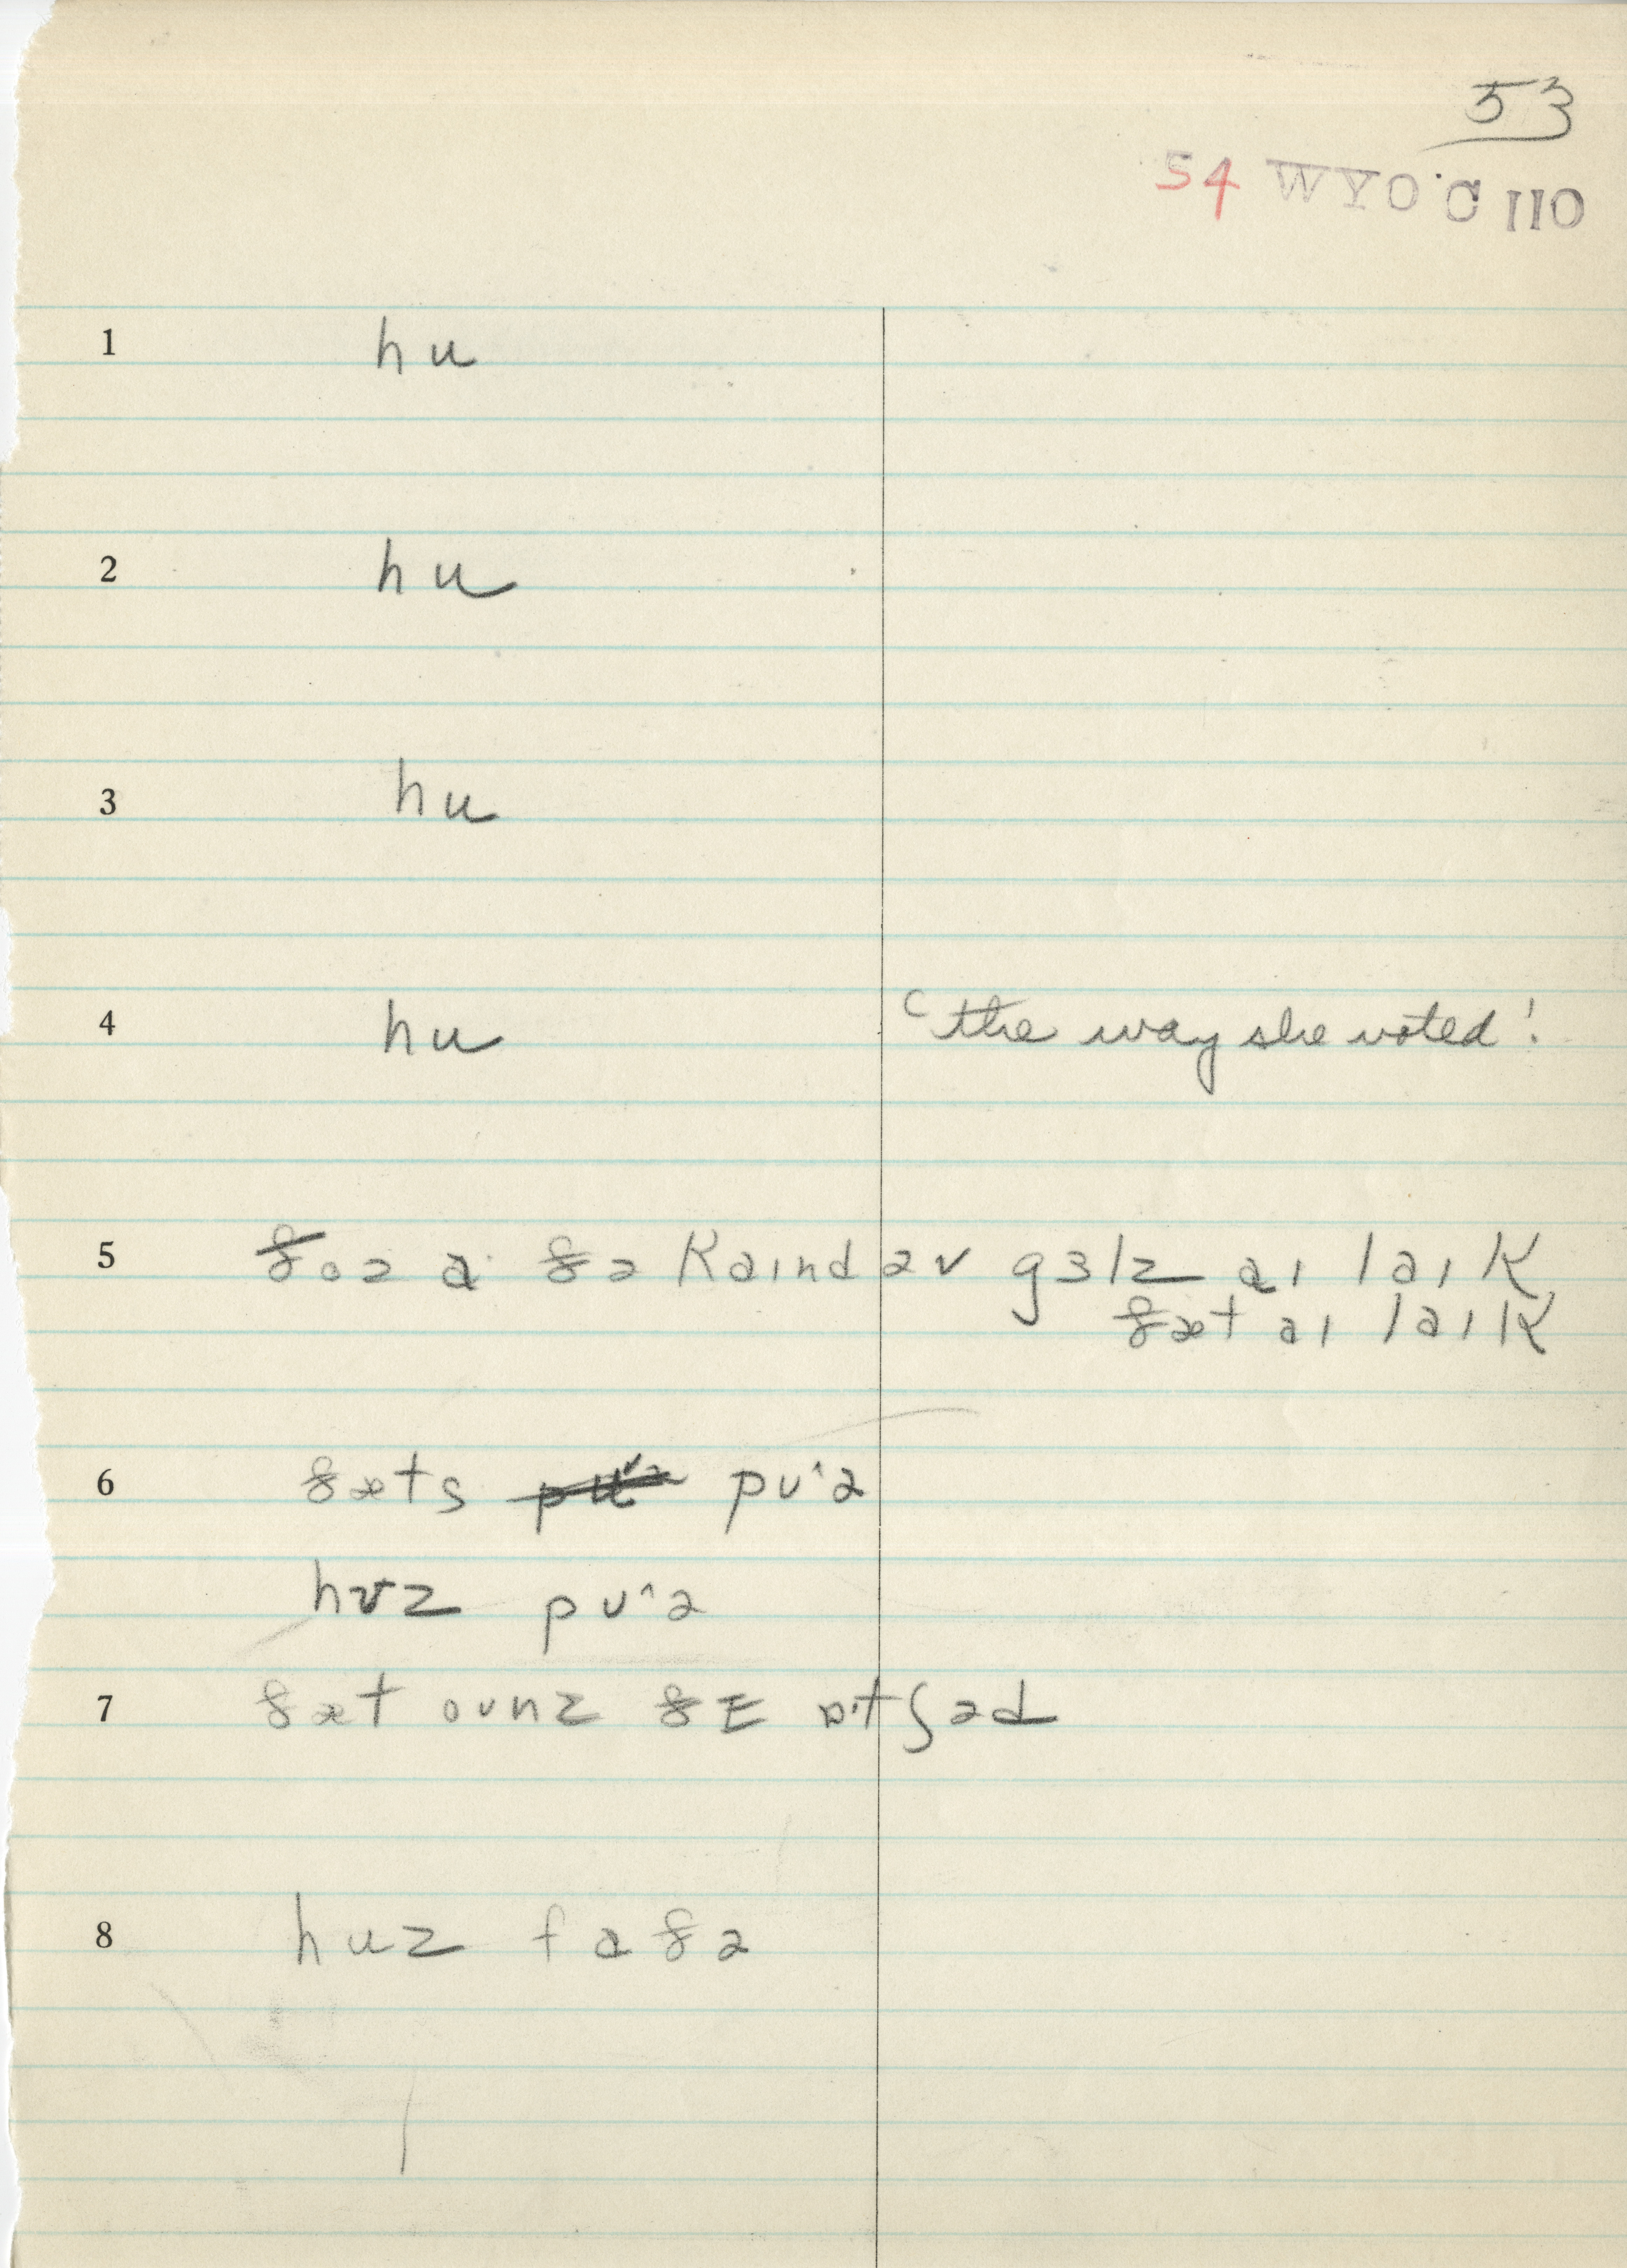 53
54 WYO. C 110
1 hu
2 hu
3 hu
4 hu ᶜthe way she voted!
5 ðoə a ðə kaɪnd əv gɜlz aɪ laɪk
ðæt aɪ laɪk
6 ðæts pʊ^ə
hʊz pʊ^ə
7 ðæt oʊnz ðɛ ɒˑtʃəd
8 huz faðə